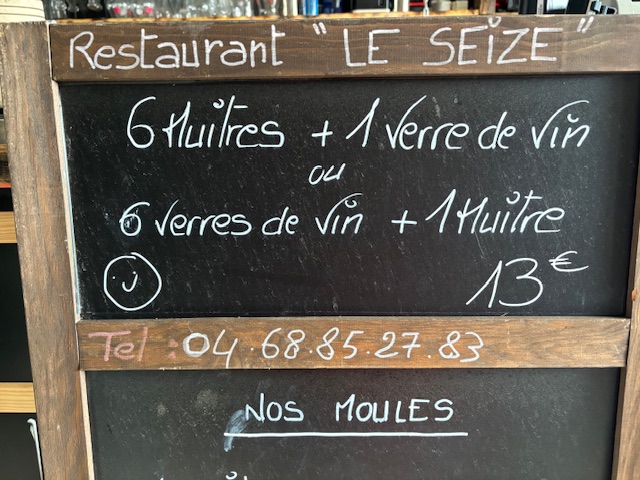 Restaurant "LE SEIZE"
6 Huîtres + 1 Verre de Vin
ou
6 Verres de Vin + 1 Huître
13€
Tel : 04.68.85.27.83
NOS MOULES